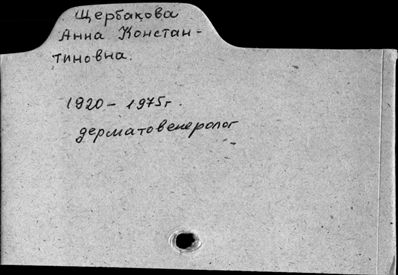 Щербакова
Анна Констан-
тиновна.
1920 - 1975г.
дерматовенеролог